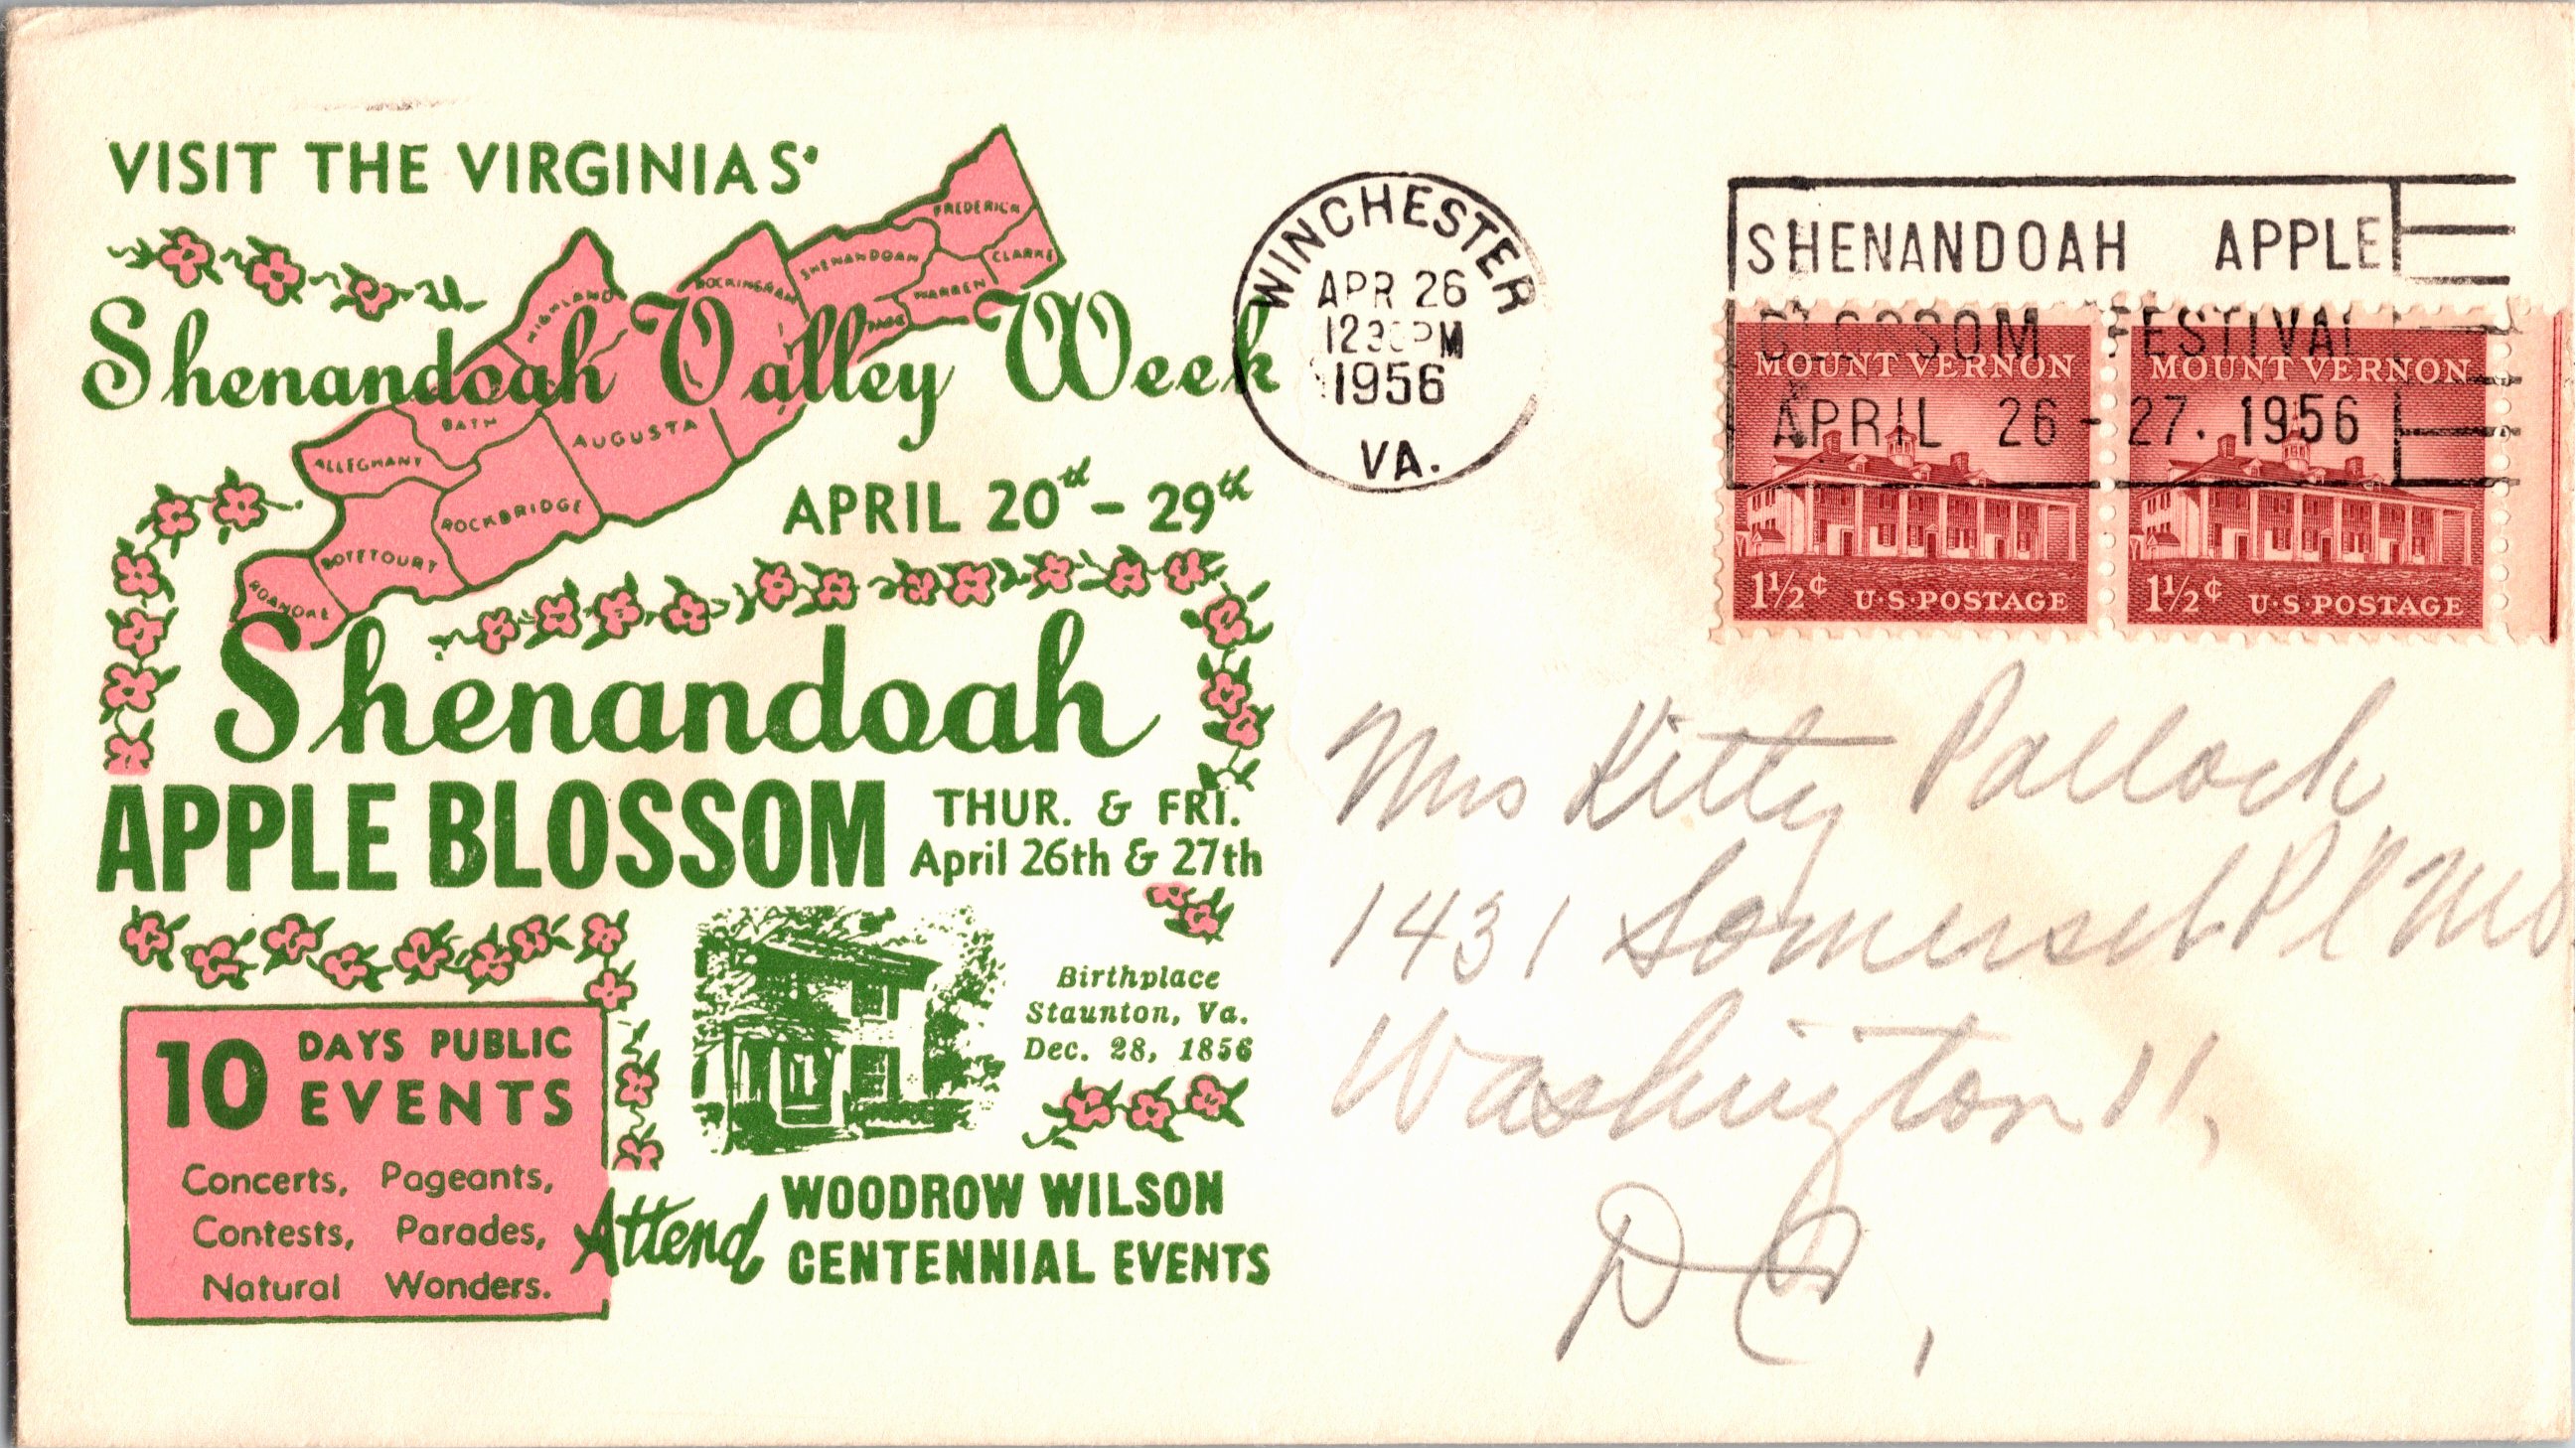 VISIT THE VIRGINIAS'
Shenandoah Valley Week
FREDERICK
CLARKE
SHENANDOAH
WARREN
PAGE
ROCKINGHAM
HIGHLAND
AUGUSTA
BATH
ALLEGHANY
ROCKBRIDGE
BOTETOURT
ROANOKE
APRIL 20th - 29th
Shenandoah
APPLE BLOSSOM
THUR. & FRI.
April 26th & 27th
10 DAYS PUBLIC
EVENTS
Concerts, Pageants,
Contests, Parades,
Natural Wonders.
Birthplace
Staunton, Va.
Dec. 28, 1856
Attend WOODROW WILSON
CENTENNIAL EVENTS
WINCHESTER
APR 26
1230PM
1956
VA.
SHENANDOAH APPLE
BLOSSOM FESTIVAL
APRIL 26-27. 1956
MOUNT VERNON
1½¢ U·S·POSTAGE
MOUNT VERNON
1½¢ U·S·POSTAGE
Mrs Kitty Pallock
1431 Somerset Pl
Washington 11,
D C,